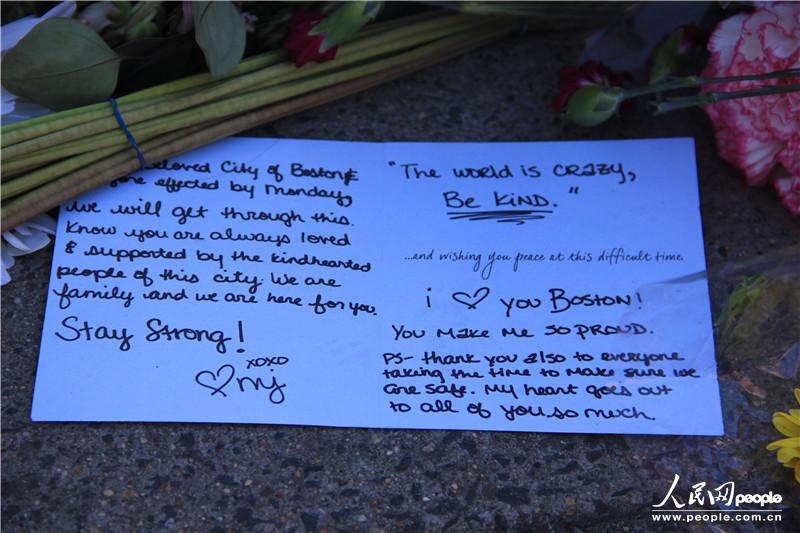 beloved City of Boston &
effected by Monday,
We will get through this.
Know you are always loved
& supported by the kindhearted
people of this city. We are
family and we are here for you.
Stay Strong!
xoxo
♡ mj
"The world is crazy,
Be Kind."
...and wishing you peace at this difficult time.
i ♡ you Boston!
You make me so proud.
PS- thank you also to everyone
taking the time to make sure we
are safe. My heart goes out
to all of you so much.
人民网 people
www.people.com.cn